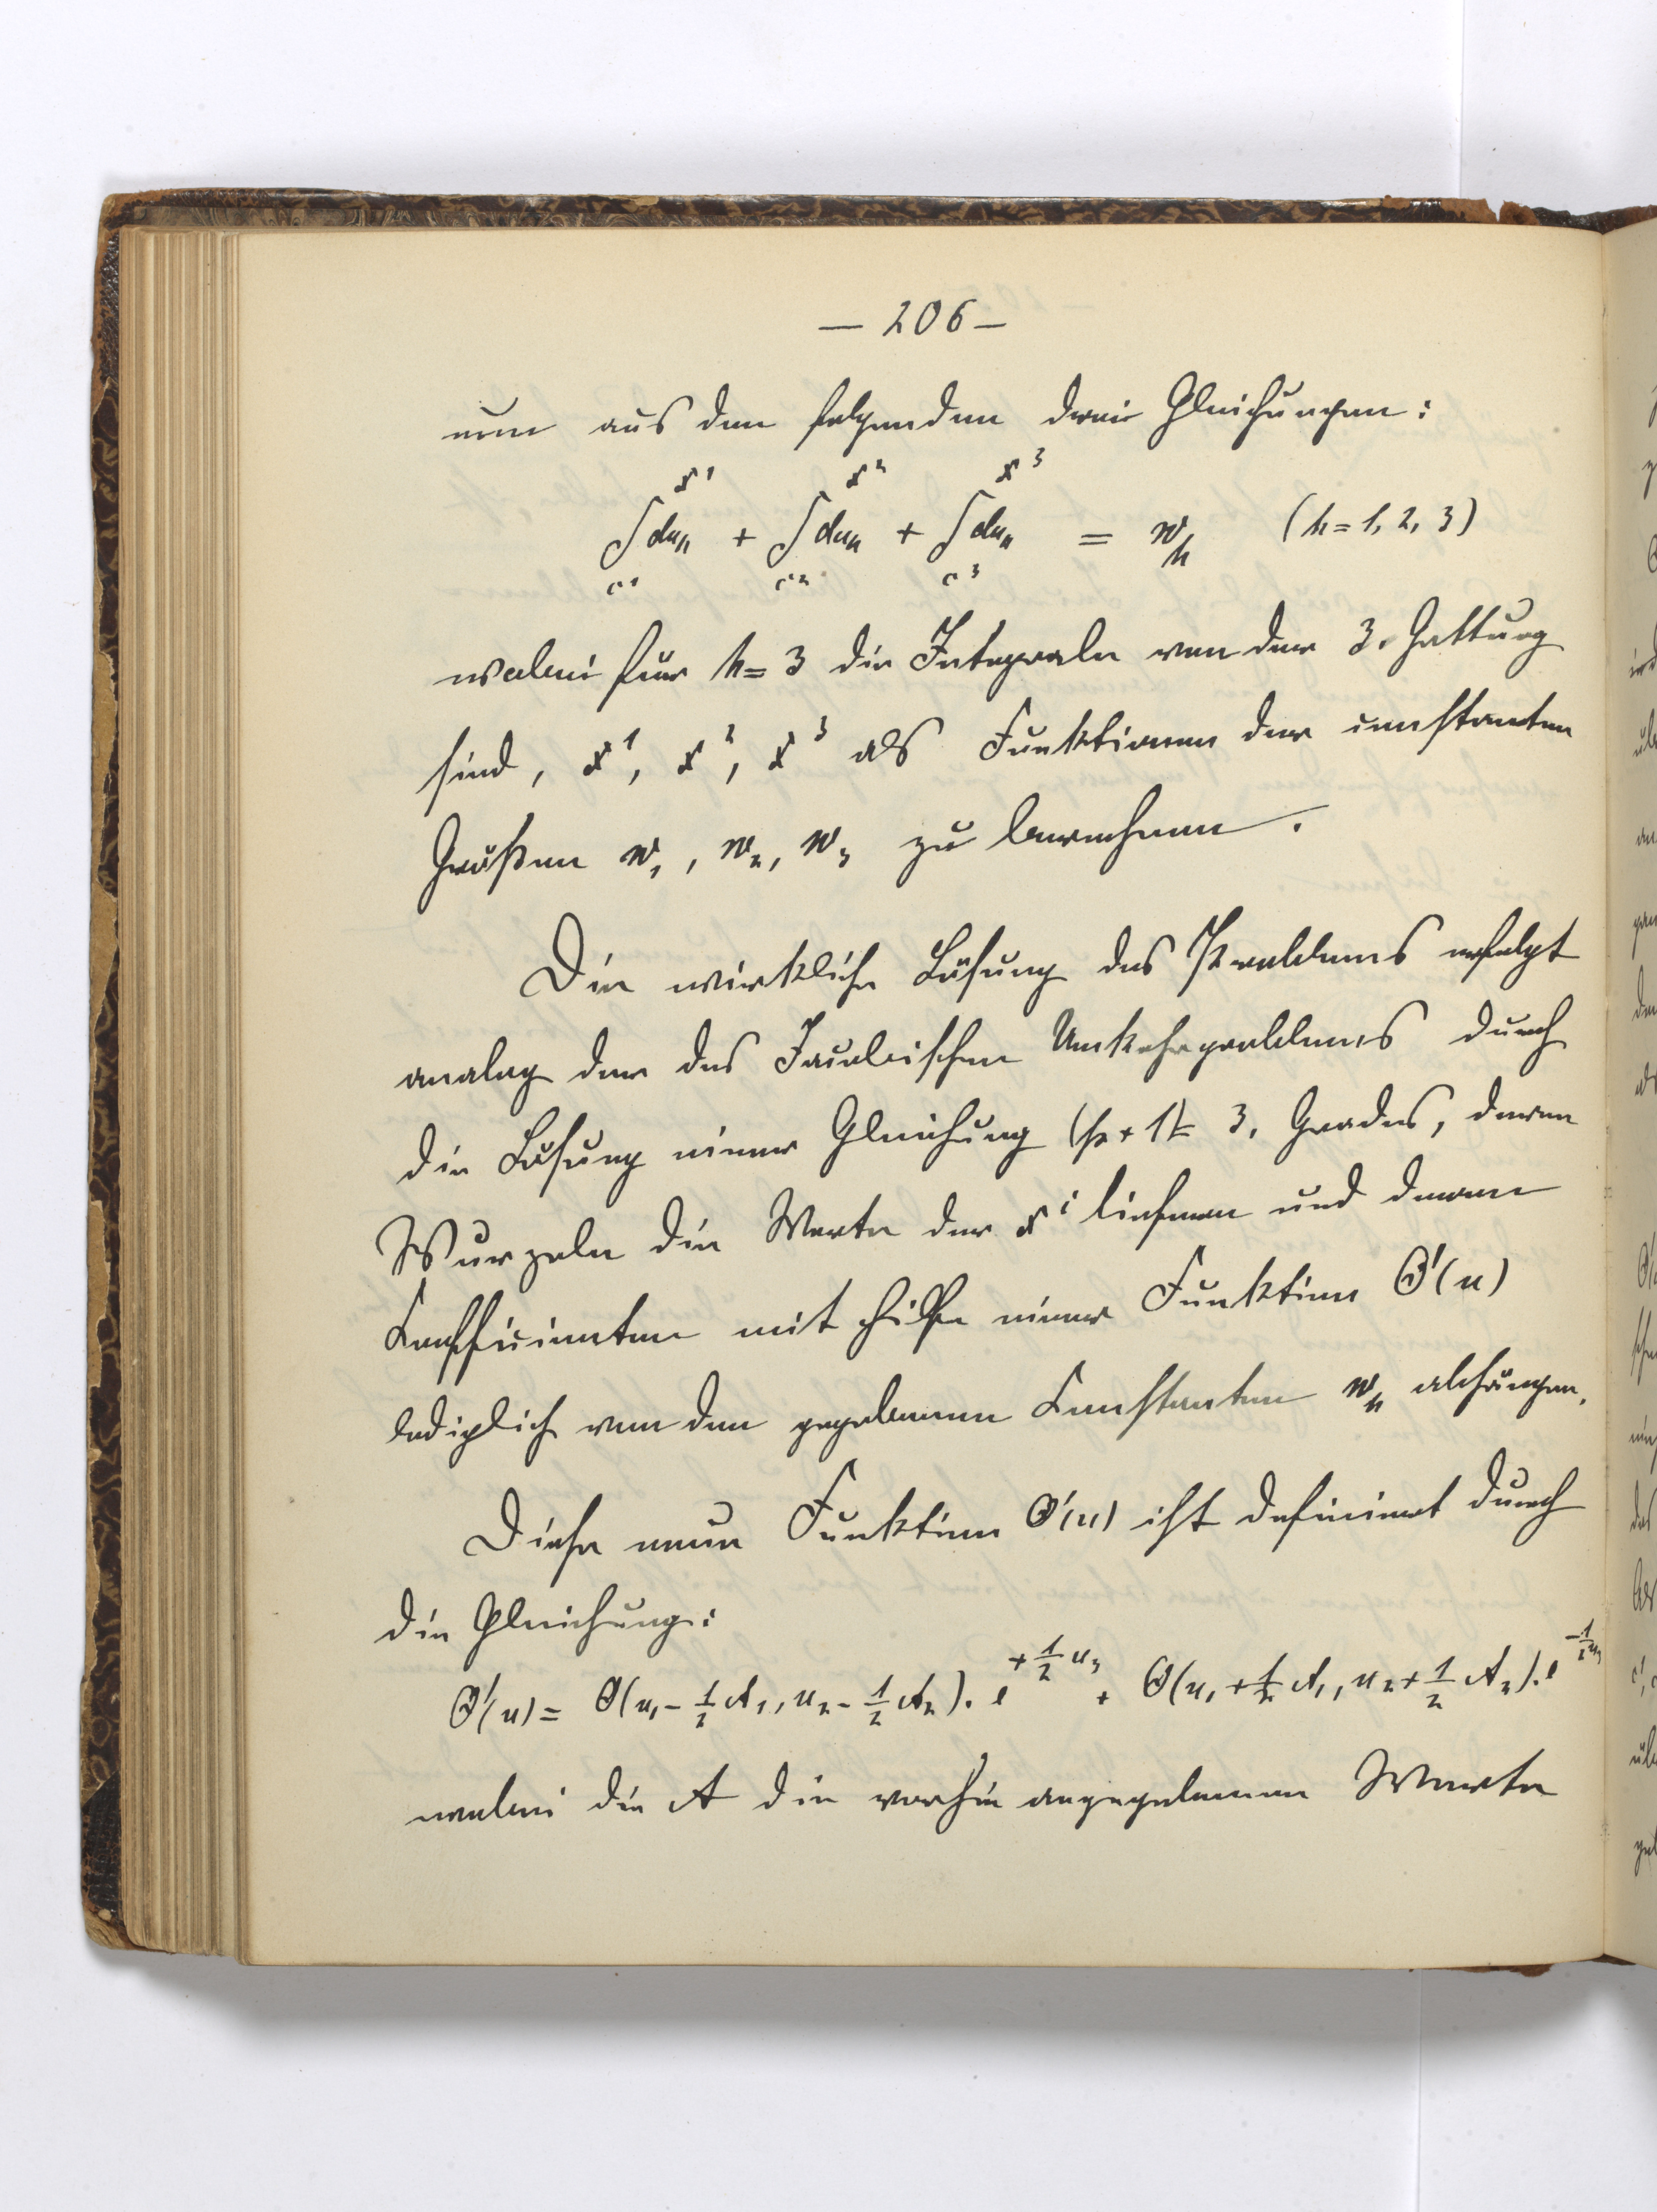 — 206 —
nun aus den folgenden drei Gleichungen:
x¹ x² x³
∫duₕ + ∫duₕ + ∫duₕ = wₕ (h = 1, 2, 3)
c¹ c² c³
wobei für h = 3 die Integrale von der 3. Gattung
sind, x¹, x², x³ als Funktionen der constanten
Größen w₁, w₂, w₃ zu berechnen.
Die wirkliche Lösung des Problems erfolgt
analog der des Jacobischen Umkehrproblems durch
die Lösung einer Gleichung (p + 1) = 3. Grades, deren
Wurzeln die Werte der xⁱ liefern und deren
Coefficienten mit Hilfe einer Funktion Θ'(u)
lediglich von den gegebenen Constanten wₕ abhängen.
Diese neue Funktion Θ'(u) ist definiert durch
die Gleichung:
Θ'(u) = Θ(u₁ - ½A₁, u₂ - ½A₂). e^{+½u₃} + Θ(u₁ + ½A₁, u₂ + ½A₂). e^{-½u₃}
wobei die A die vorhin angegebenen Werte